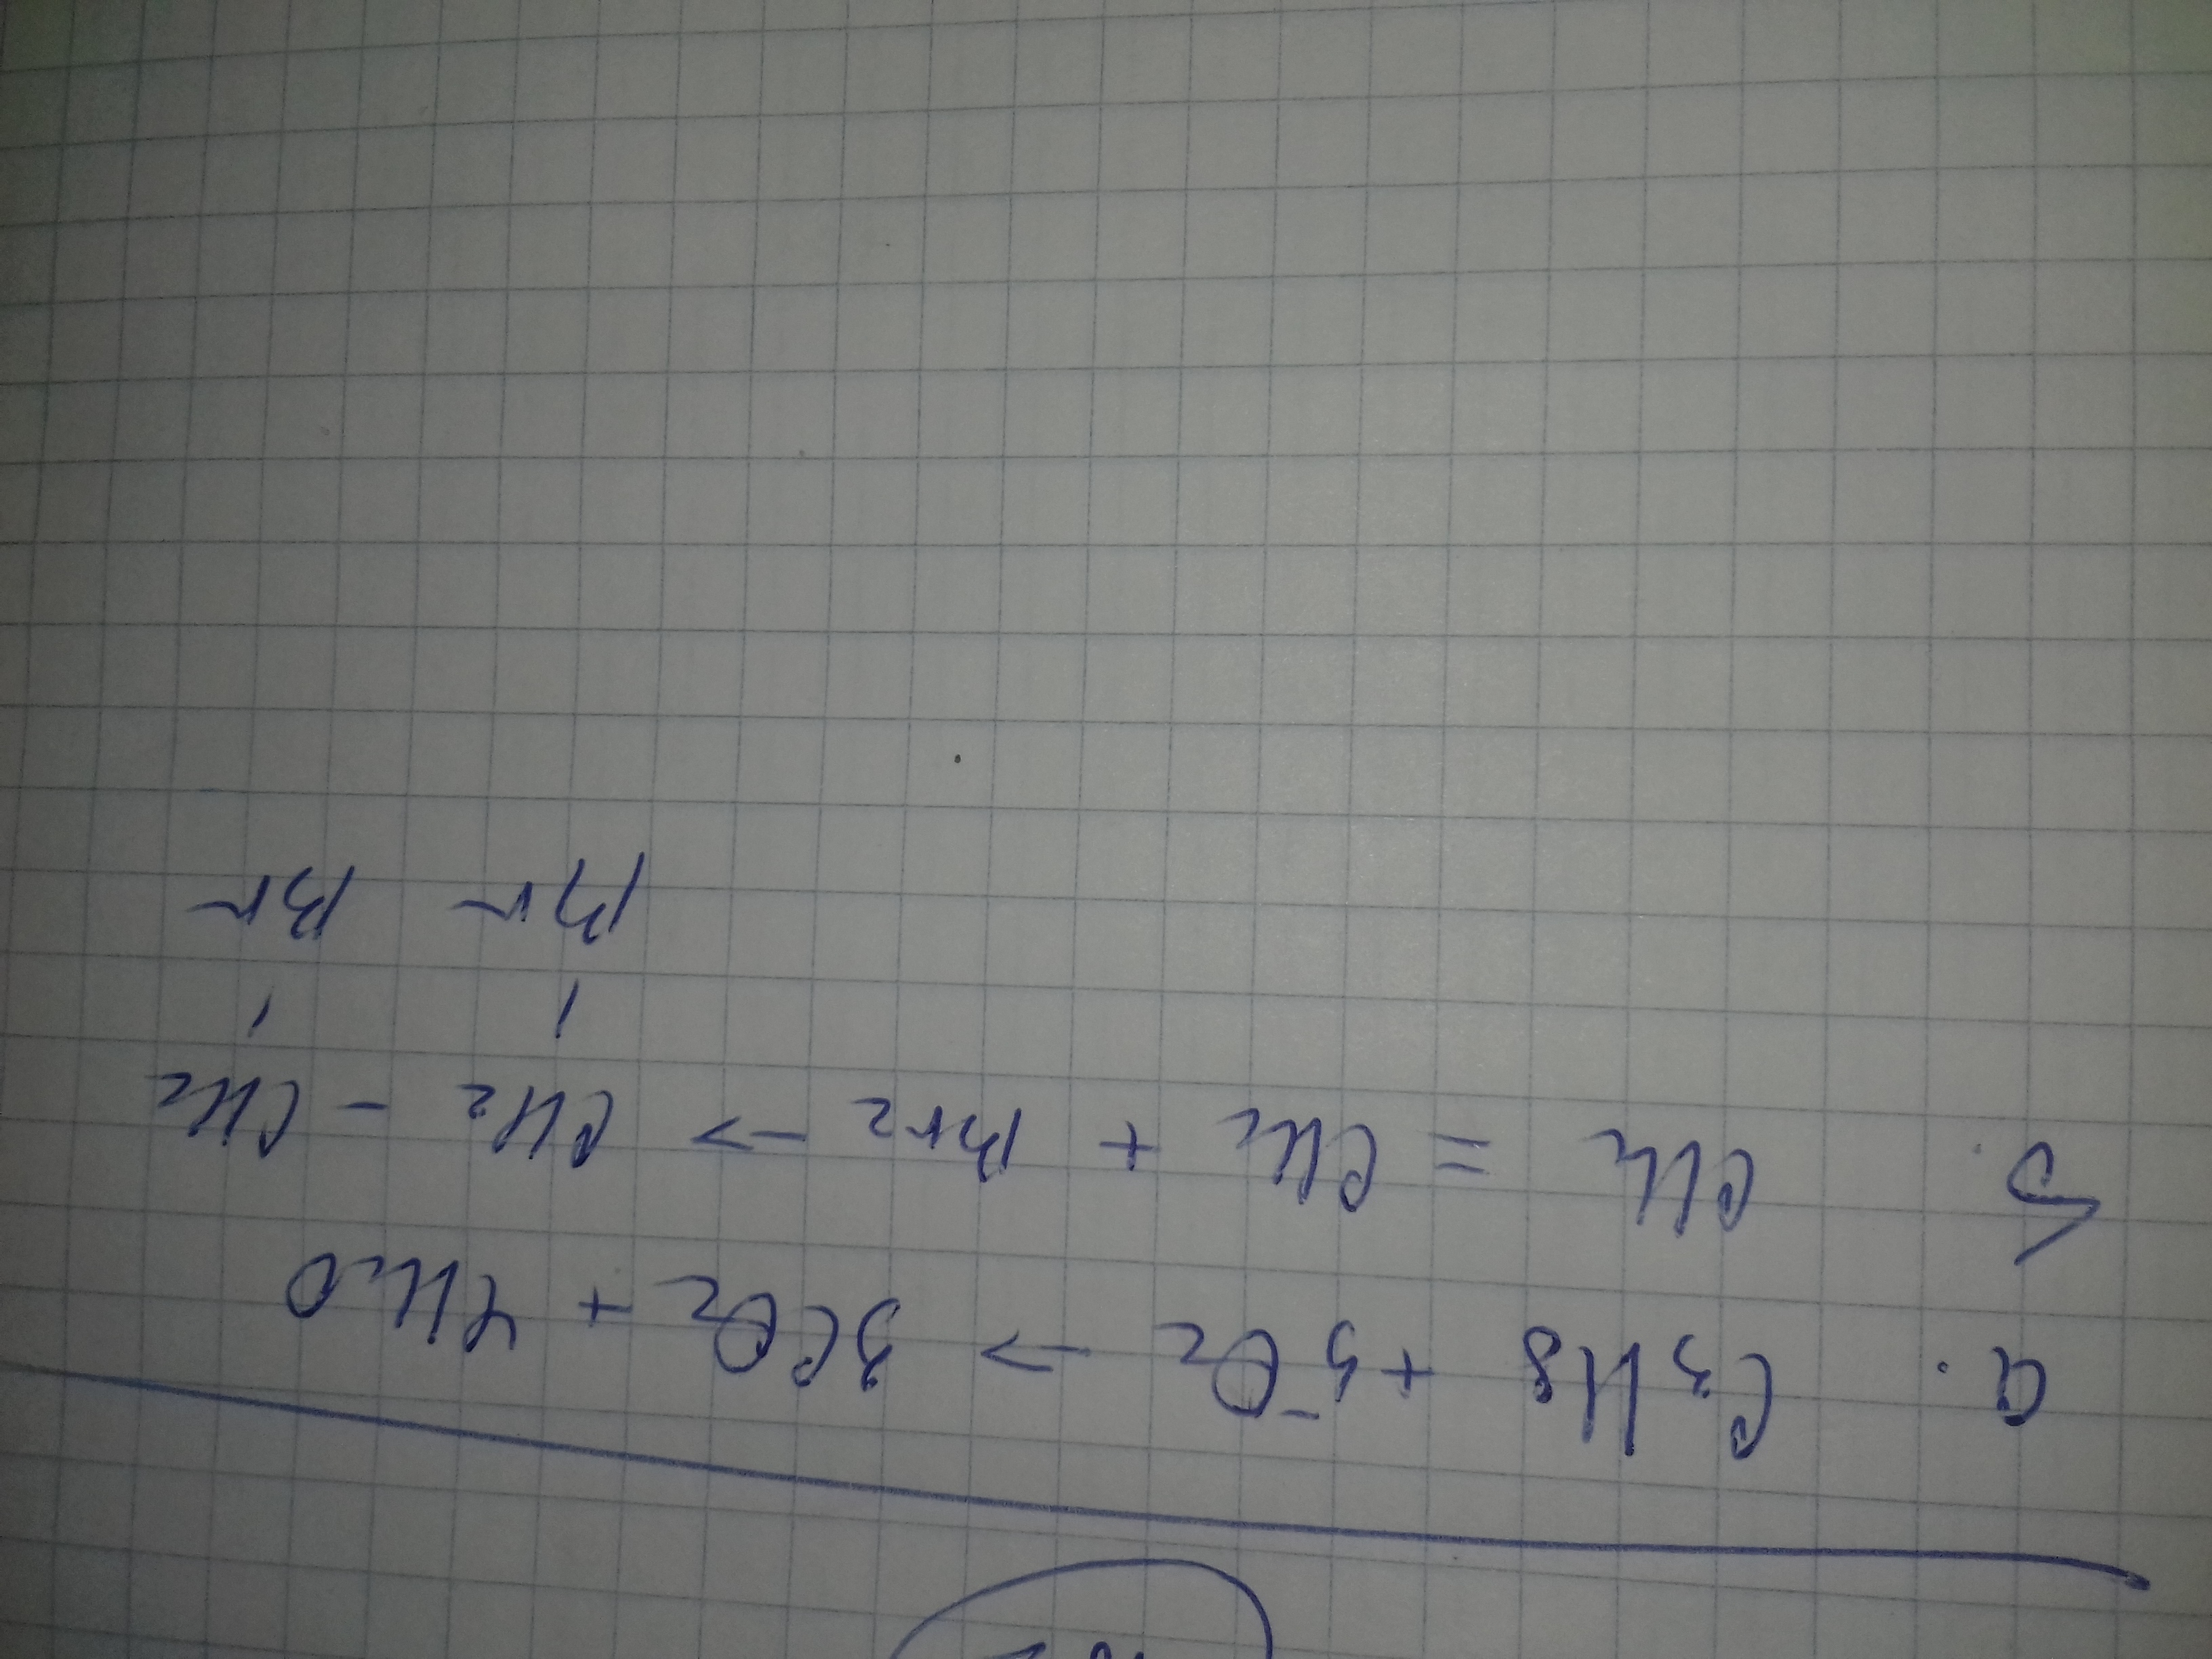 a. C3H8 + 5O2 -> 3CO2 + 4H2O
б. CH2 = CH2 + Br2 -> CH2 - CH2
Br Br